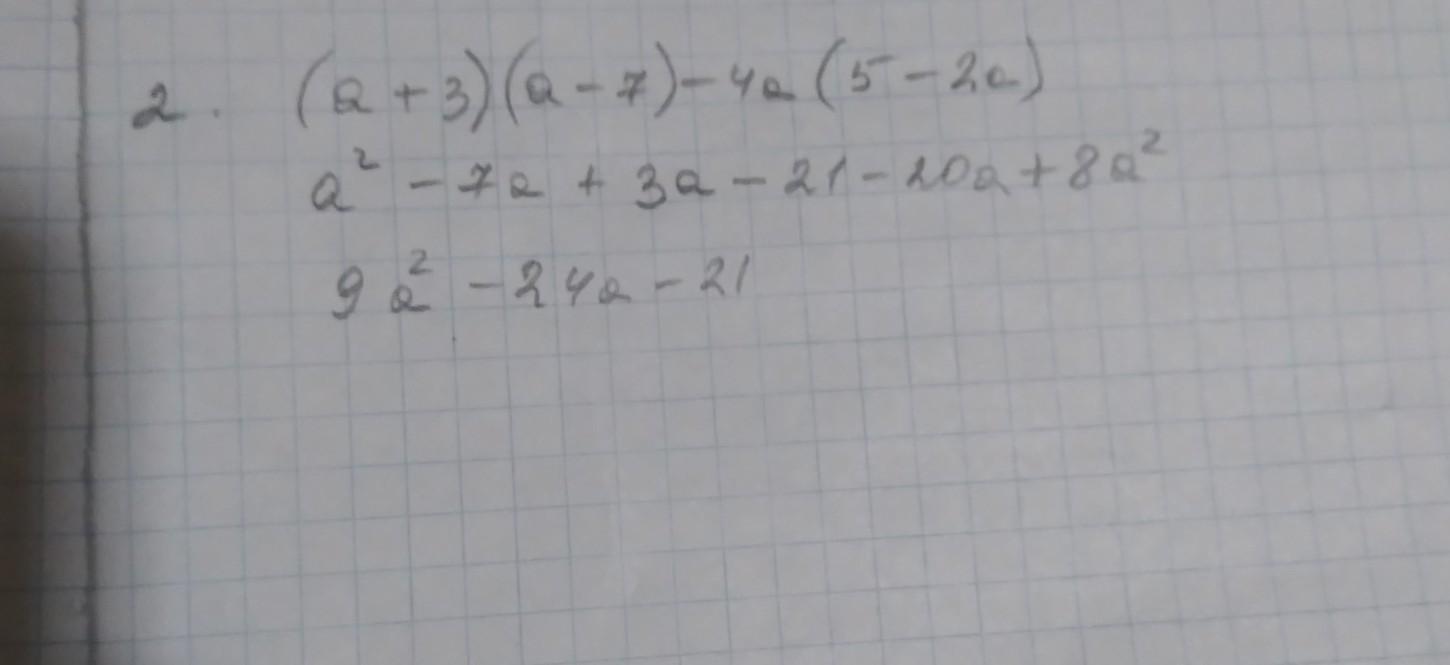 2. (a + 3)(a - 7) - 4a (5 - 2a)
a² - 7a + 3a - 21 - 20a + 8a²
9a² - 24a - 21